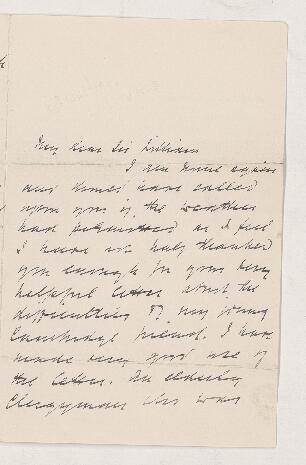 My dear Sir William
I am home again
and would have called
upon you if the weather
had permitted as I feel
I have not half thanked
you enough for your very
helpful letter about the
difficulties of my young
Cambridge friend. I have
made very good use of
the letter. An elderly
Clergyman who was